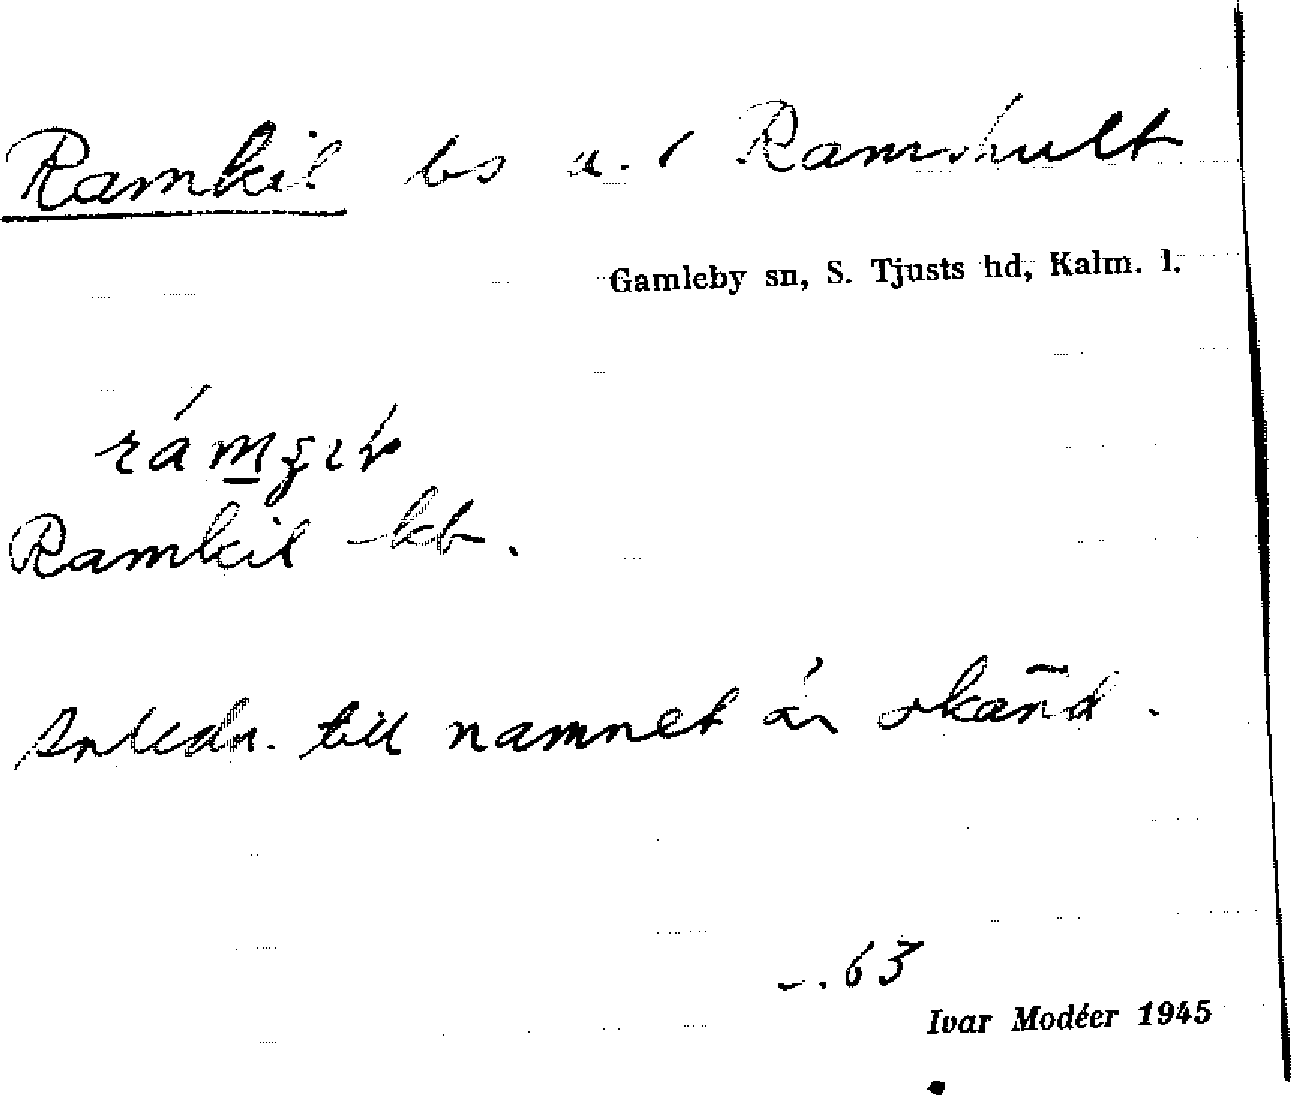 Ramkil bs u. Ramshult
Gamleby sn, S. Tjusts hd, Kalm. l.
Ramkil kb.
Anledn. till namnet är okänd.
–. 63
Ivar Modéer 1945